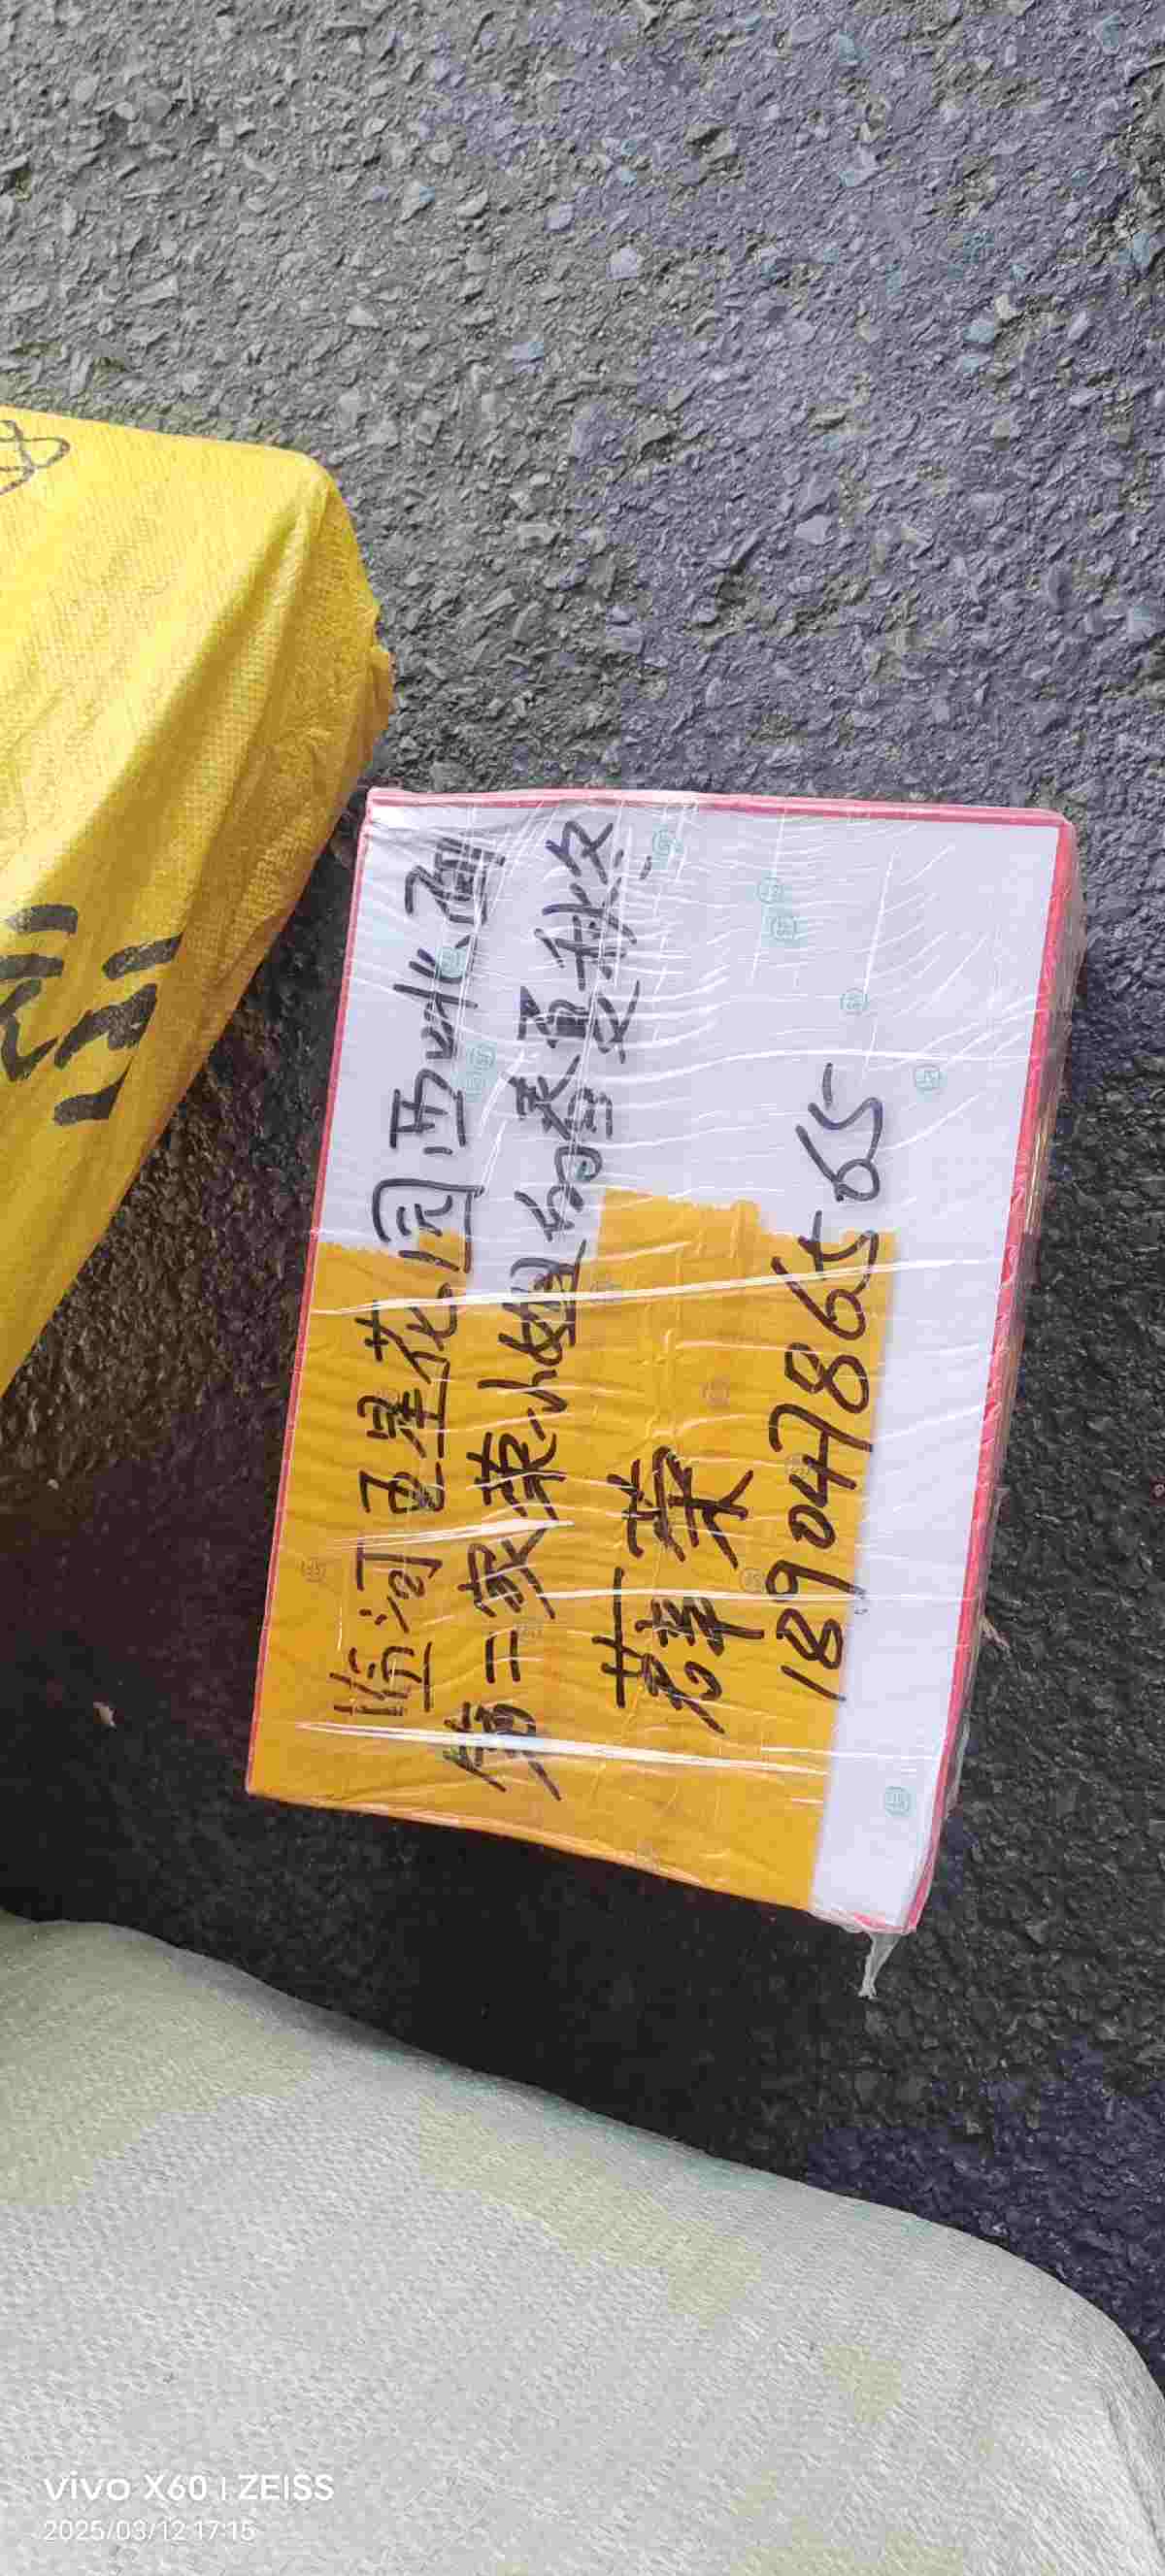 临河 巨星花园西北角
第二家荣小姐的香夏秋
薛荣
18904786565
vivo X60 | ZEISS
2025/03/12 17:15